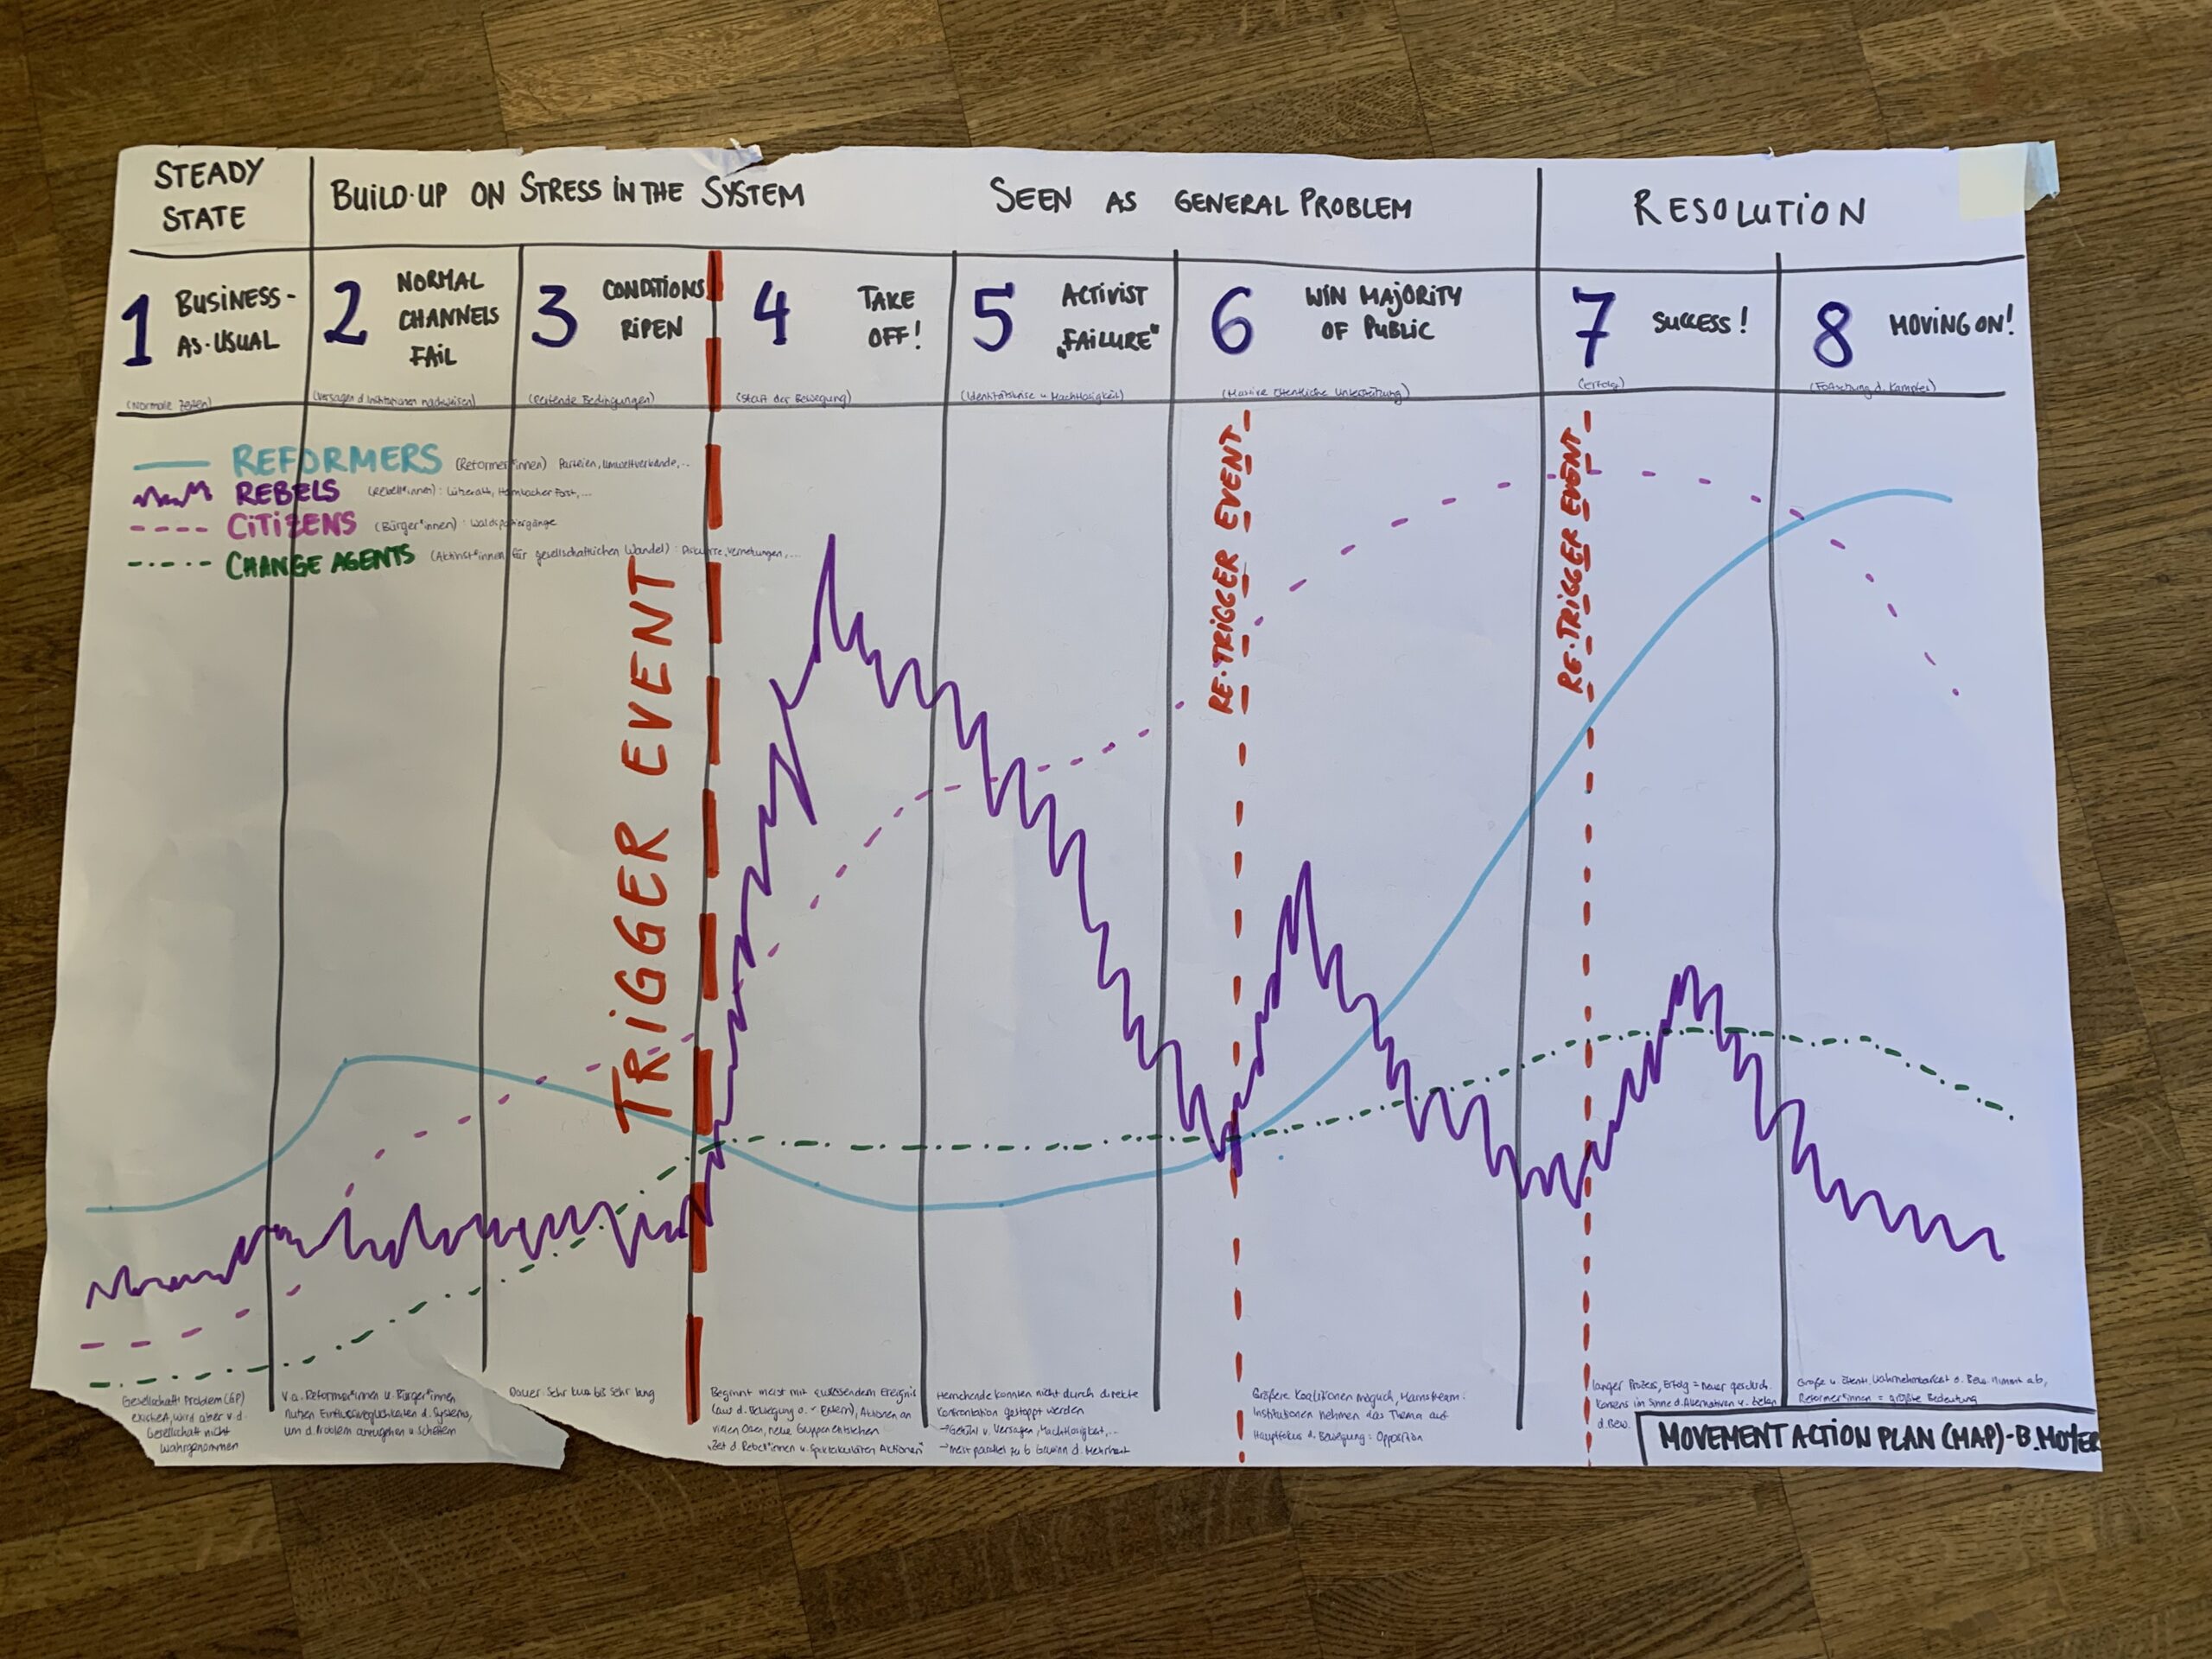 STEADY
STATE
BUILD-UP ON STRESS IN THE SYSTEM
SEEN AS GENERAL PROBLEM
RESOLUTION
1 BUSINESS-
AS-USUAL
(Normale Zeiten)
2 NORMAL
CHANNELS
FAIL
(Versagen d. Institutionen nachweisen)
3 CONDITIONS
RIPEN
(Reifende Bedingungen)
4 TAKE
OFF!
(Start der Bewegung)
5 ACTIVIST
„FAILURE"
(Identitätskrise u. Machtlosigkeit)
6 WIN MAJORITY
OF PUBLIC
(Massive öffentliche Unterstützung)
7 SUCCESS!
(Erfolg)
8 MOVING ON!
d. Kampfes)
REFORMERS (Reformer*innen) Parteien, Umweltverbände,..
REBELS (Rebell*innen): Lützerath, Hambacher Forst,...
CITIZENS (Bürger*innen): Waldspaziergänge
CHANGE AGENTS (Aktivist*innen für gesellschaftlichen Wandel): Diskurse, Vernetzungen,...
TRIGGER EVENT
RE-TRIGGER EVENT
RE-TRIGGER EVENT
Gesellschaftl. Problem (GP)
existiert, wird aber v. d.
Gesellschaft nicht
wahrgenommen
V.a. Reformer*innen u. Bürger*innen
nutzen Einflussmöglichkeiten d. Systems,
um d. Problem anzugehen u. scheitern
Dauer sehr kurz bis sehr lang
Beginnt meist mit auslösendem Ereignis
(aus d. Bewegung o. Extern), Aktionen an
vielen Orten, neue Gruppen entstehen
Zeit d. Rebell*innen u. spektakulären Aktionen
Herrschende konnten nicht durch direkte
Konfrontation gestoppt werden
→Gefühl v. Versagen, Machtlosigkeit,...
→meist parallel zu 6 Gewinn d. Mehrheit
Größere Koalitionen möglich, Mainstream-
Institutionen nehmen das Thema auf
Hauptfokus d. Bewegung: Opposition
langer Prozess, Erfolg = neuer gesellsch.
Konsens im Sinne d. Alternativen u.
d. Bew.
Größe u. Wahrnehmbarkeit d. Bew. nimmt ab,
Reformer*innen = größte Bedeutung
MOVEMENT ACTION PLAN (MAP)-B. MOYER